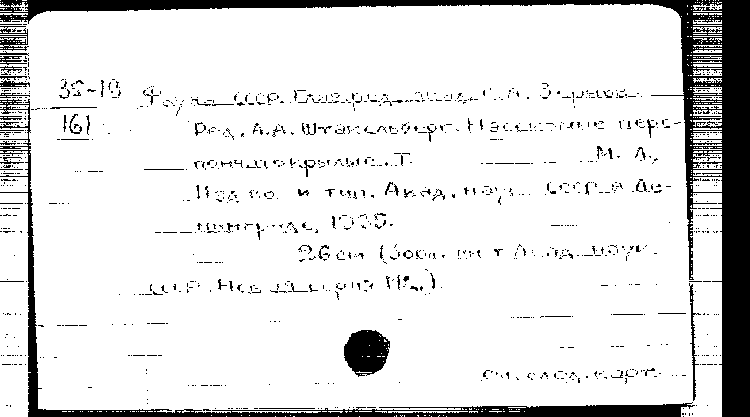 35-19 Фауна СССР. Глав. ред. акад. С.А. Зернов.
161 Ред. А.А. Штакельберг. Насекомые пере-
пончатокрылые. Т. М. Л.,
Изд-во и тип. Акад. наук СССР в Ле-
нинграде, 1935.
26 см (Зоол. ин-т Акад. наук
СССР. Новая серия №).
см. след. карт.